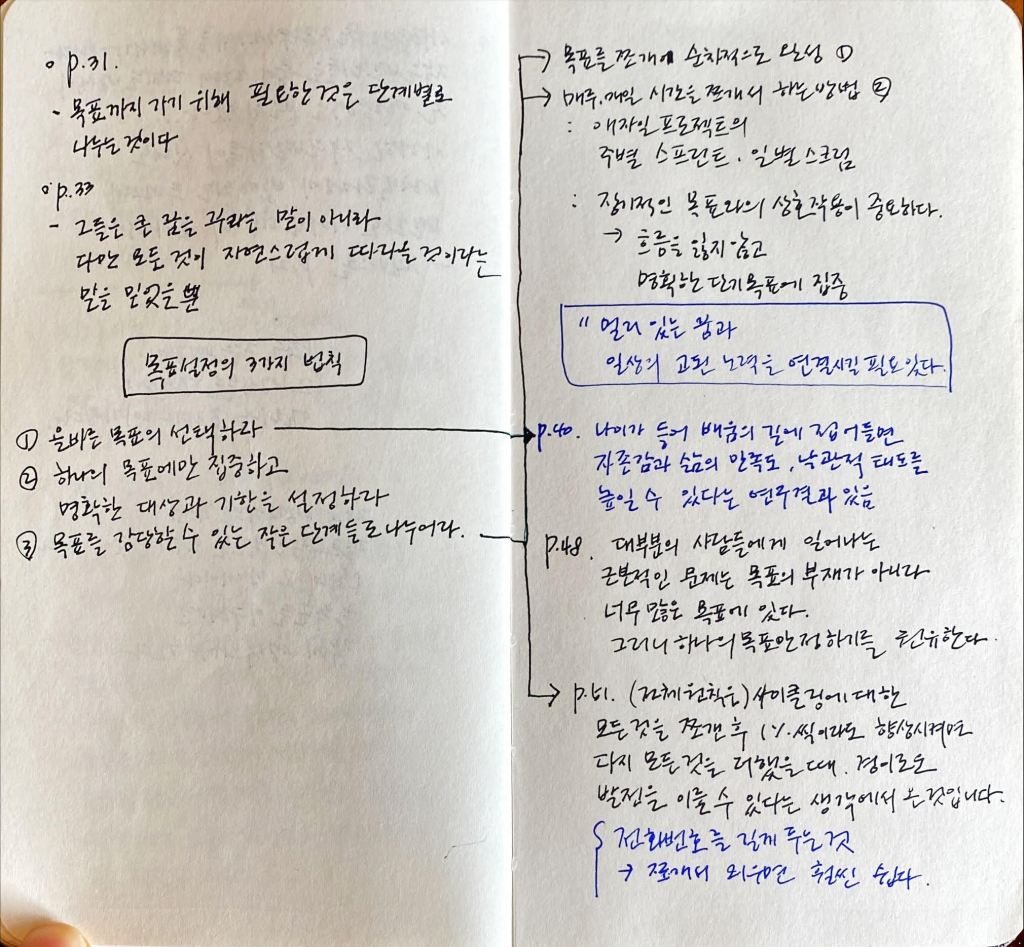 p.31.
- 목표까지 가기 위해 필요한 것은 단계별로
나누는 것이다
p.33
- 그들은 큰 꿈을 꾸라는 말이 아니라
다만 모든 것이 자연스럽게 따라올 것이라는
말을 믿었을 뿐
목표설정의 3가지 법칙
① 올바른 목표의 선택하라
② 하나의 목표에만 집중하고
명확한 대상과 기한을 설정하라
③ 목표를 감당할 수 있는 작은 단계들로 나누어라.
→ 목표를 쪼개어 순차적으로 완성 ①
→ 매주, 매일 시간을 쪼개서 하는 방법 ②
: 애자일 프로젝트의
주별 스프린트. 일별 스크럼
: 장기적인 목표와의 상호작용이 중요하다.
→ 흐름을 잃지 않고
명확하는 단기목표에 집중
" 멀리 있는 꿈과
일상의 고된 노력을 연결시킬 필요있다.
p.40. 나이가 들어 배움의 길에 접어들면
자존감과 삶의 만족도, 낙관적 태도를
높일 수 있다는 연구결과 있음
p.48. 대부분의 사람들에게 일어나는
근본적인 문제는 목표의 부재가 아니라
너무 많은 목표에 있다.
그러니 하나의 목표만 정하기를 권유한다.
→ p.51. (전체 원칙은) 사이클링에 대한
모든 것을 쪼갠 후 1%씩이라도 향상시켜면
다시 모든 것을 더했을 때,
발전을 이룰 수 있다는 생각에서 온 것입니다.
전화번호를 길게 두는 것
→ 쪼개서 외우면 훨씬 쉽다.